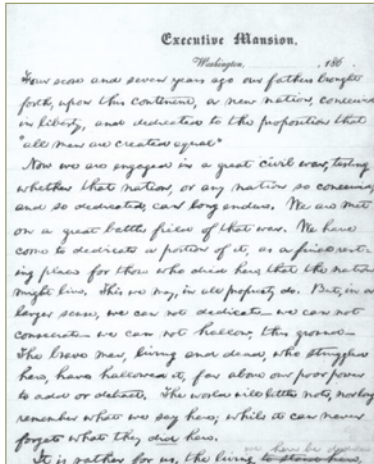 Executive Mansion,
Washington, , 186 .
Four score and seven years ago our fathers brought
forth, upon this continent, a new nation, conceived
in liberty, and dedicated to the proposition that
"all men are created equal"
Now we are engaged in a great civil war, testing
whether that nation, or any nation so conceived,
and so dedicated, can long endure. We are met
on a great battle field of that war. We have
come to dedicate a portion of it, as a final rest-
ing place for those who died here, that the nation
might live. This we may, in all propriety do. But, in a
larger sense, we can not dedicate – we can not
consecrate – we can not hallow, this ground –
The brave men, living and dead, who struggled
here, have hallowed it, far above our poor power
to add or detract. The world will little note, nor long
remember what we say here; while it can never
forget what they did here.
we here be
It is rather for us, the living to stand here,